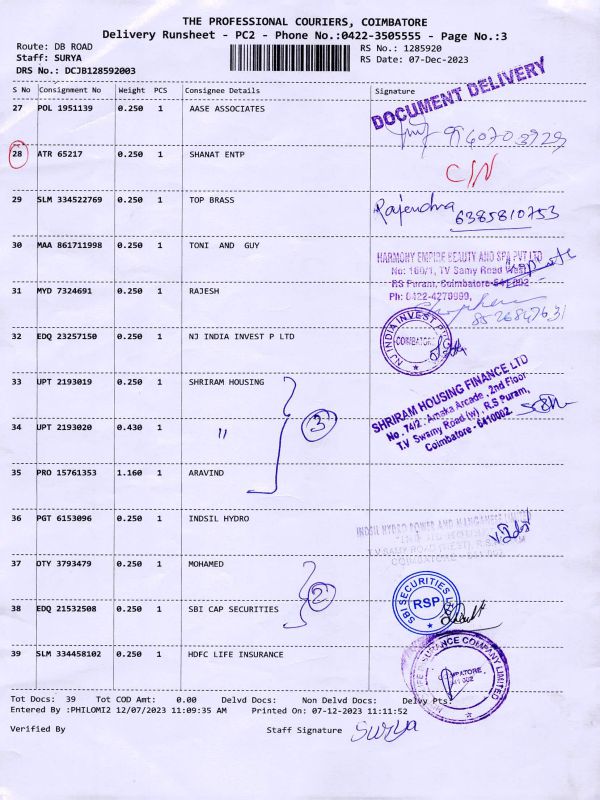 THE PROFESSIONAL COURIERS, COIMBATORE
Delivery Runsheet - PC2 - Phone No.:0422-3505555 - Page No.:3
Route: DB ROAD RS No.: 1285920
Staff: SURYA RS Date: 07-Dec-2023
DRS No.: DCJB128592003
S No Consignment No Weight PCS Consignee Details Signature
DOCUMENT DELIVERY
27 POL 1951139 0.250 1 AASE ASSOCIATES
28 ATR 65217 0.250 1 SHANAT ENTP
C/N
29 SLM 334522769 0.250 1 TOP BRASS
Rajendra 6385810753
30 MAA 861711998 0.250 1 TONI AND GUY
HARMONY EMPIRE BEAUTY AND SPA PVT LTD
No: 160/1, TV Samy Road West,
RS Puram, Coimbatore-641 002
Ph: 0422-4270999,
31 MYD 7324691 0.250 1 RAJESH
8526847631
32 EDQ 23257150 0.250 1 NJ INDIA INVEST P LTD
NJ INDIA INVEST P
COIMBATORE
33 UPT 2193019 0.250 1 SHRIRAM HOUSING
SHRIRAM HOUSING FINANCE LTD
No. 74/2, Amaka Arcade, 2nd Floor
T.V Swamy Road (w), R.S Puram,
Coimbatore - 6410002.
34 UPT 2193020 0.430 1 "
3
35 PRO 15761353 1.160 1 ARAVIND
36 PGT 6153096 0.250 1 INDSIL HYDRO
INDSIL HYDRO POWER AND MANGANESE LIMITED
T.V SAMY ROAD (WEST), R.S.
37 OTY 3793479 0.250 1 MOHAMED
2
38 EDQ 21532508 0.250 1 SBI CAP SECURITIES
SBI SECURITIES
RSP
39 SLM 334458102 0.250 1 HDFC LIFE INSURANCE
LIFE INSURANCE COMPANY LIMITED
Tot Docs: 39 Tot COD Amt: 0.00 Delvd Docs: Non Delvd Docs: Delvy Pts:
Entered By :PHILOMI2 12/07/2023 11:09:35 AM Printed On: 07-12-2023 11:11:52
Verified By Staff Signature Surya